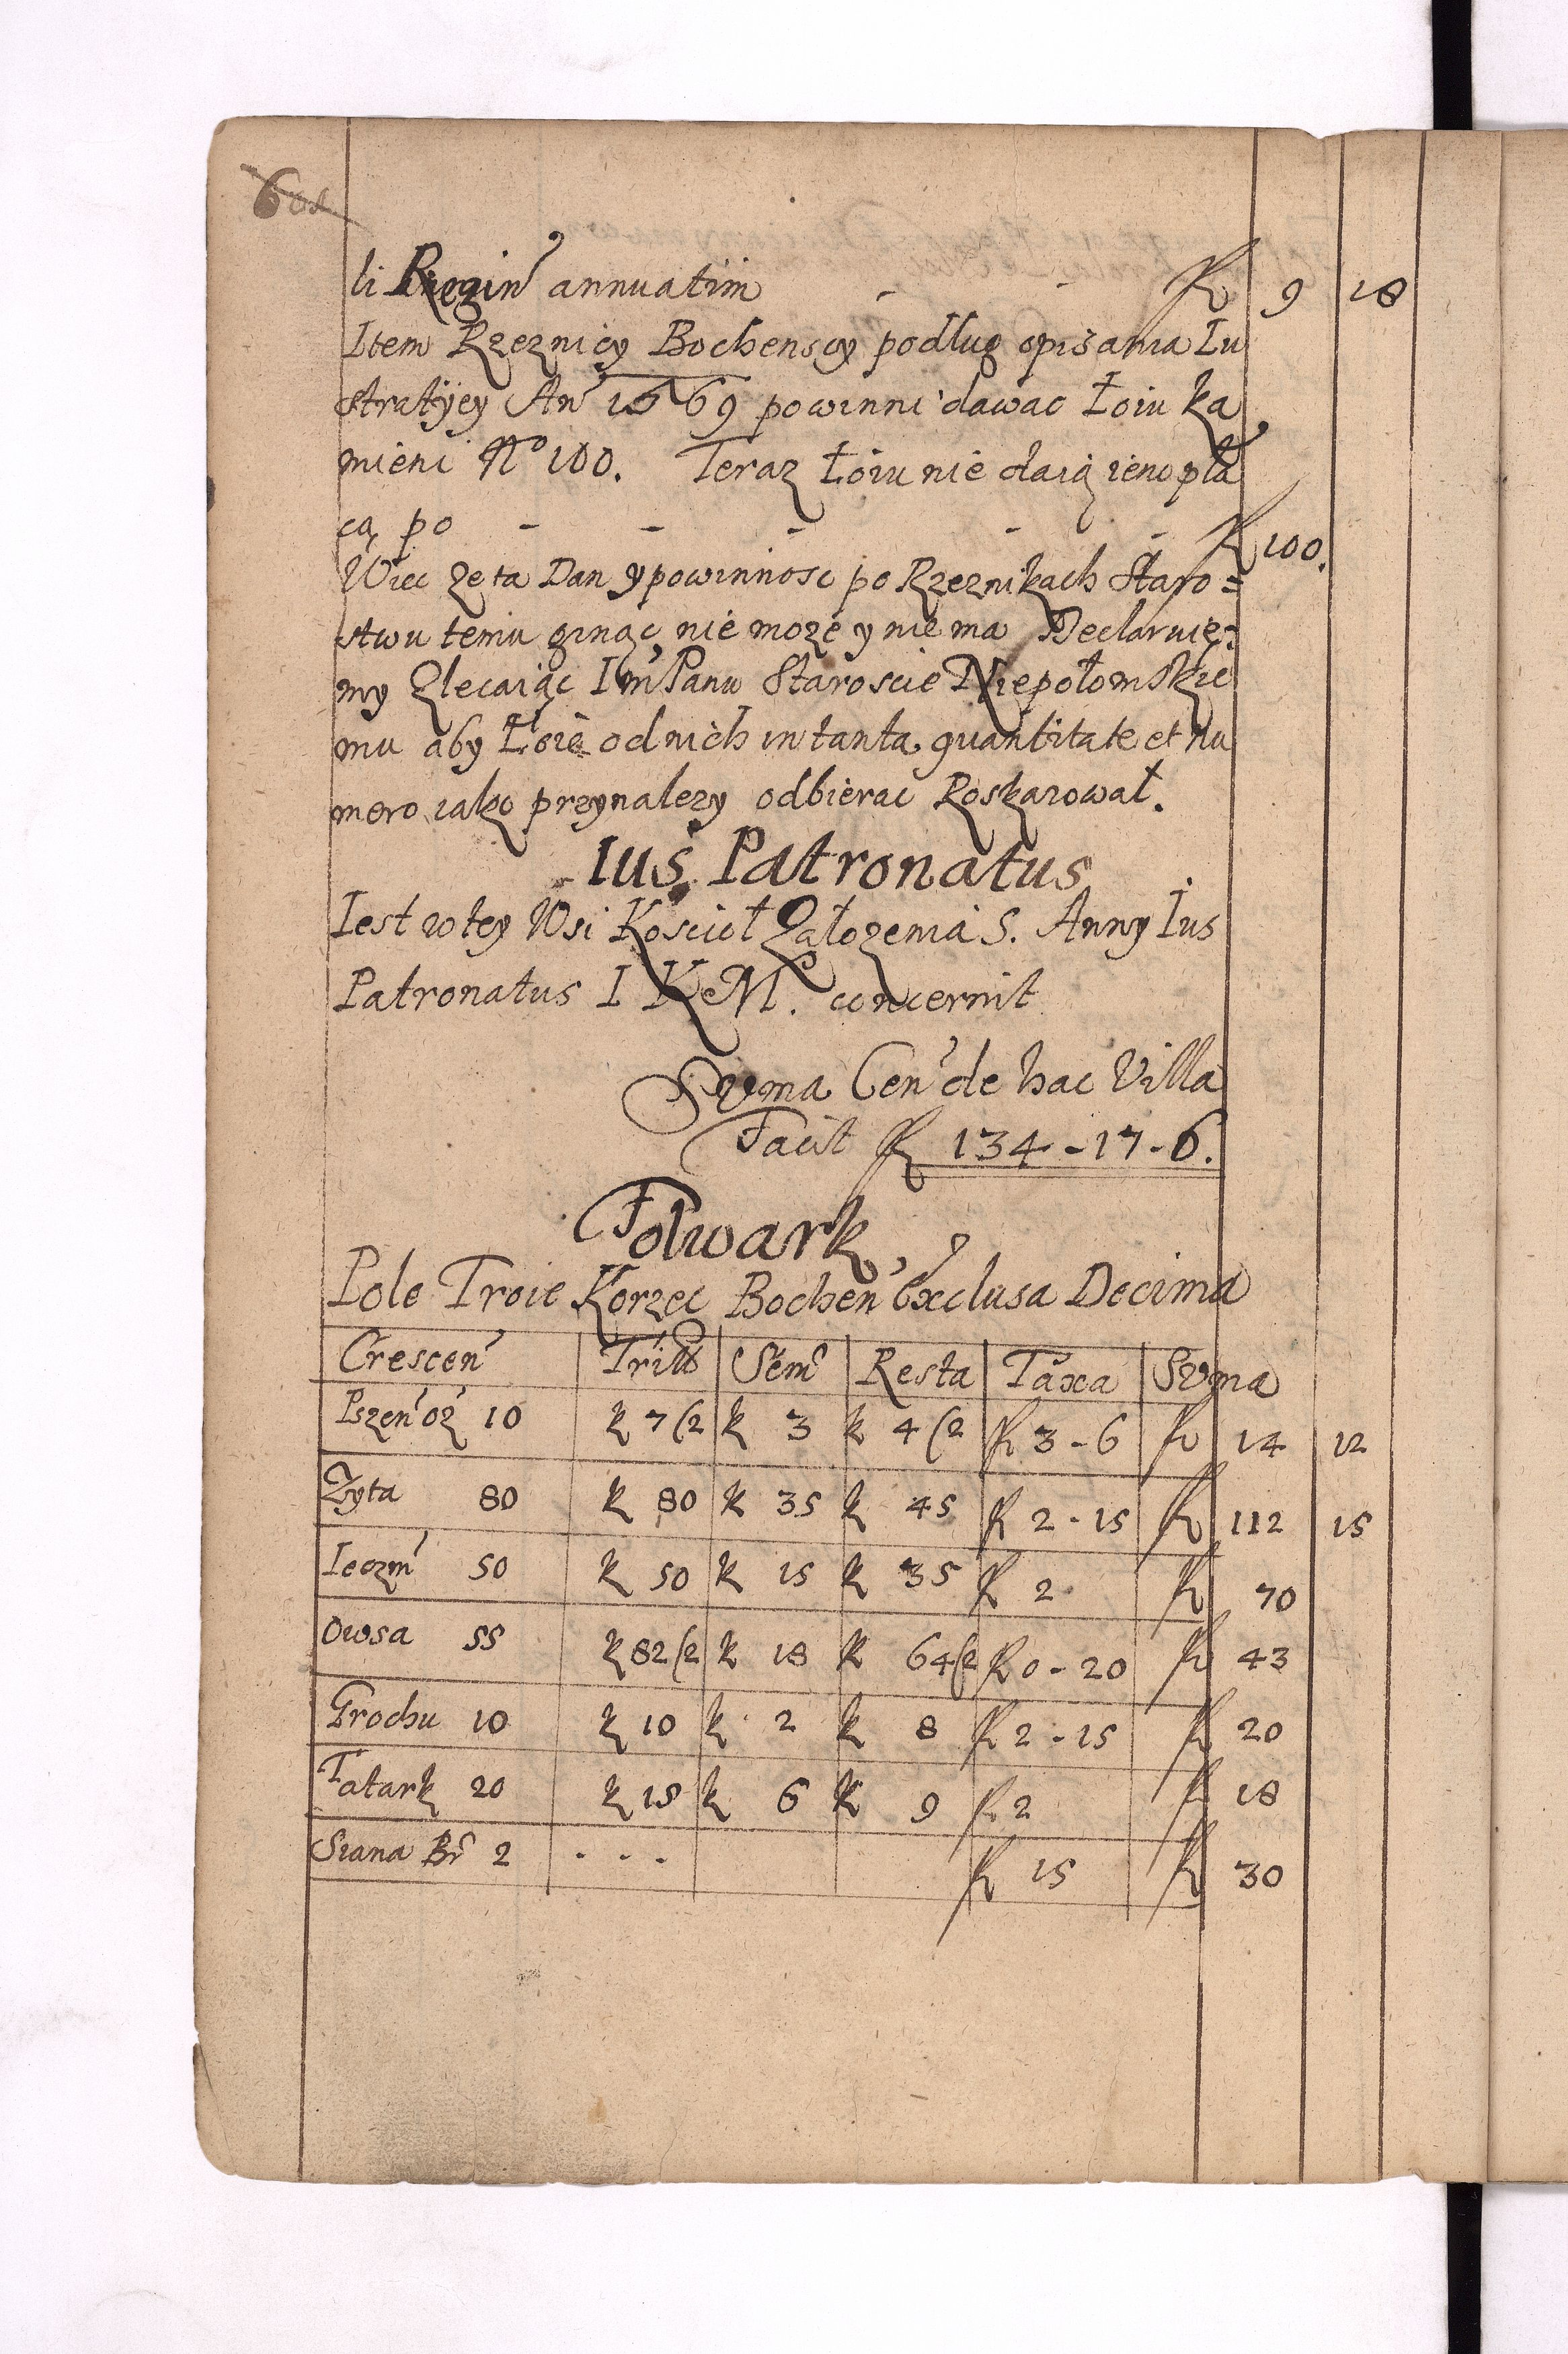 li Regin annuatim - - f 9 18
Item Rzeznicy Bochenscy podług opisania Lu
stratÿey An 1569 powinni dawac Łoiu ka
mieni No 100. Teraz Łoiu nie daią ieno pła
cą po - - - - - f 100.
Wiec ze ta Dan y powinnosc po Rzeznikach Staro=
stwu temu ginąc nie moze y nie ma Declaruie=
my Zlecaiąc Im Panu Staroscie Niepołomskie
mu aby Łoie od nich in tanta quantitate et nu
mero iako przynalezy odbierac Roskazował.
Ius Patronatus
Iest w tey Wsi Koscioł Załozenia S. Anny Ius
Patronatus I K M. concernit
Suma Cen de hac Villa
Facit f 134-17-6.
Folwark
Pole Troie Korzec Bochen Exclusa Decima
Crescen Tritt Sem Resta Taxa Suma
Pszen oz 10 k 7(2 k 3 k 4(2 f 3-6 f 14 12
Zyta 80 k 80 k 35 k 45 f 2-15 f 112 15
Ieczm 50 k 50 k 15 k 35 f 2 f 70
Owsa 55 k 82(2 k 18 k 64(2 f 0-20 f 43
Grochu 10 k 10 k 2 k 8 f 2-15 f 20
Tatark 20 k 15 k 6 k 9 f 2 f 18
Siana Br 2 - - - f 15 f 30